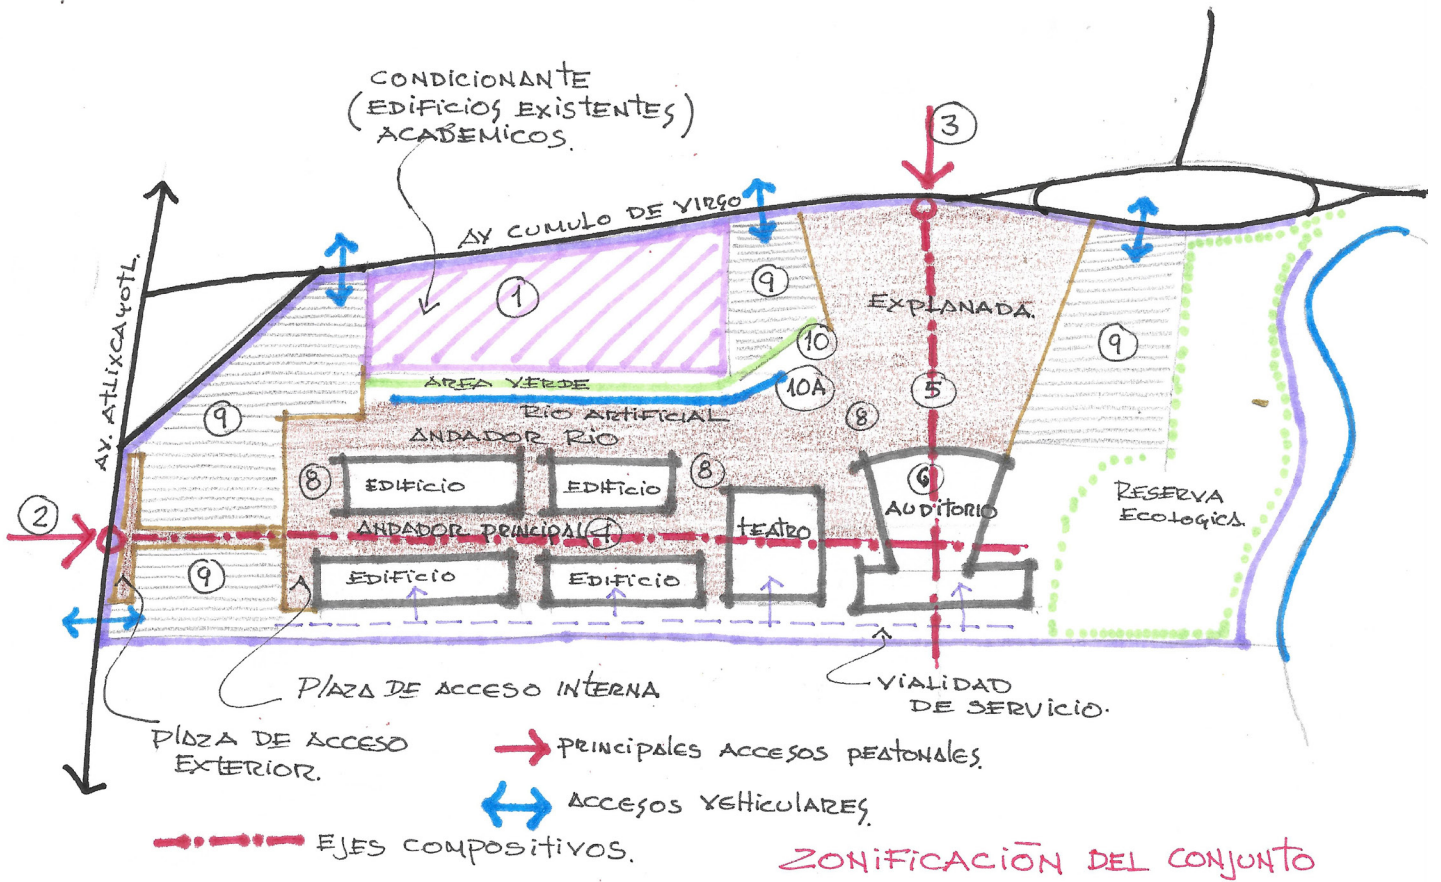 CONDICIONANTE
(EDIFICIOS EXISTENTES)
ACADEMICOS.
3
AV CUMULO DE VIRGO
AV. ATLIXCAYOTL.
1
9
EXPLANADA.
10
9
AREA VERDE
10A
5
RIO ARTIFICIAL
8
9
ANDADOR RIO
8
EDIFICIO
EDIFICIO
8
6
AUDITORIO
RESERVA
ECOLOGICA.
2
ANDADOR PRINCIPAL
4
TEATRO
9
EDIFICIO
EDIFICIO
PLAZA DE ACCESO INTERNA
VIALIDAD
DE SERVICIO.
PLAZA DE ACCESO
EXTERIOR.
PRINCIPALES ACCESOS PEATONALES.
ACCESOS VEHICULARES.
EJES COMPOSITIVOS.
ZONIFICACIÓN DEL CONJUNTO